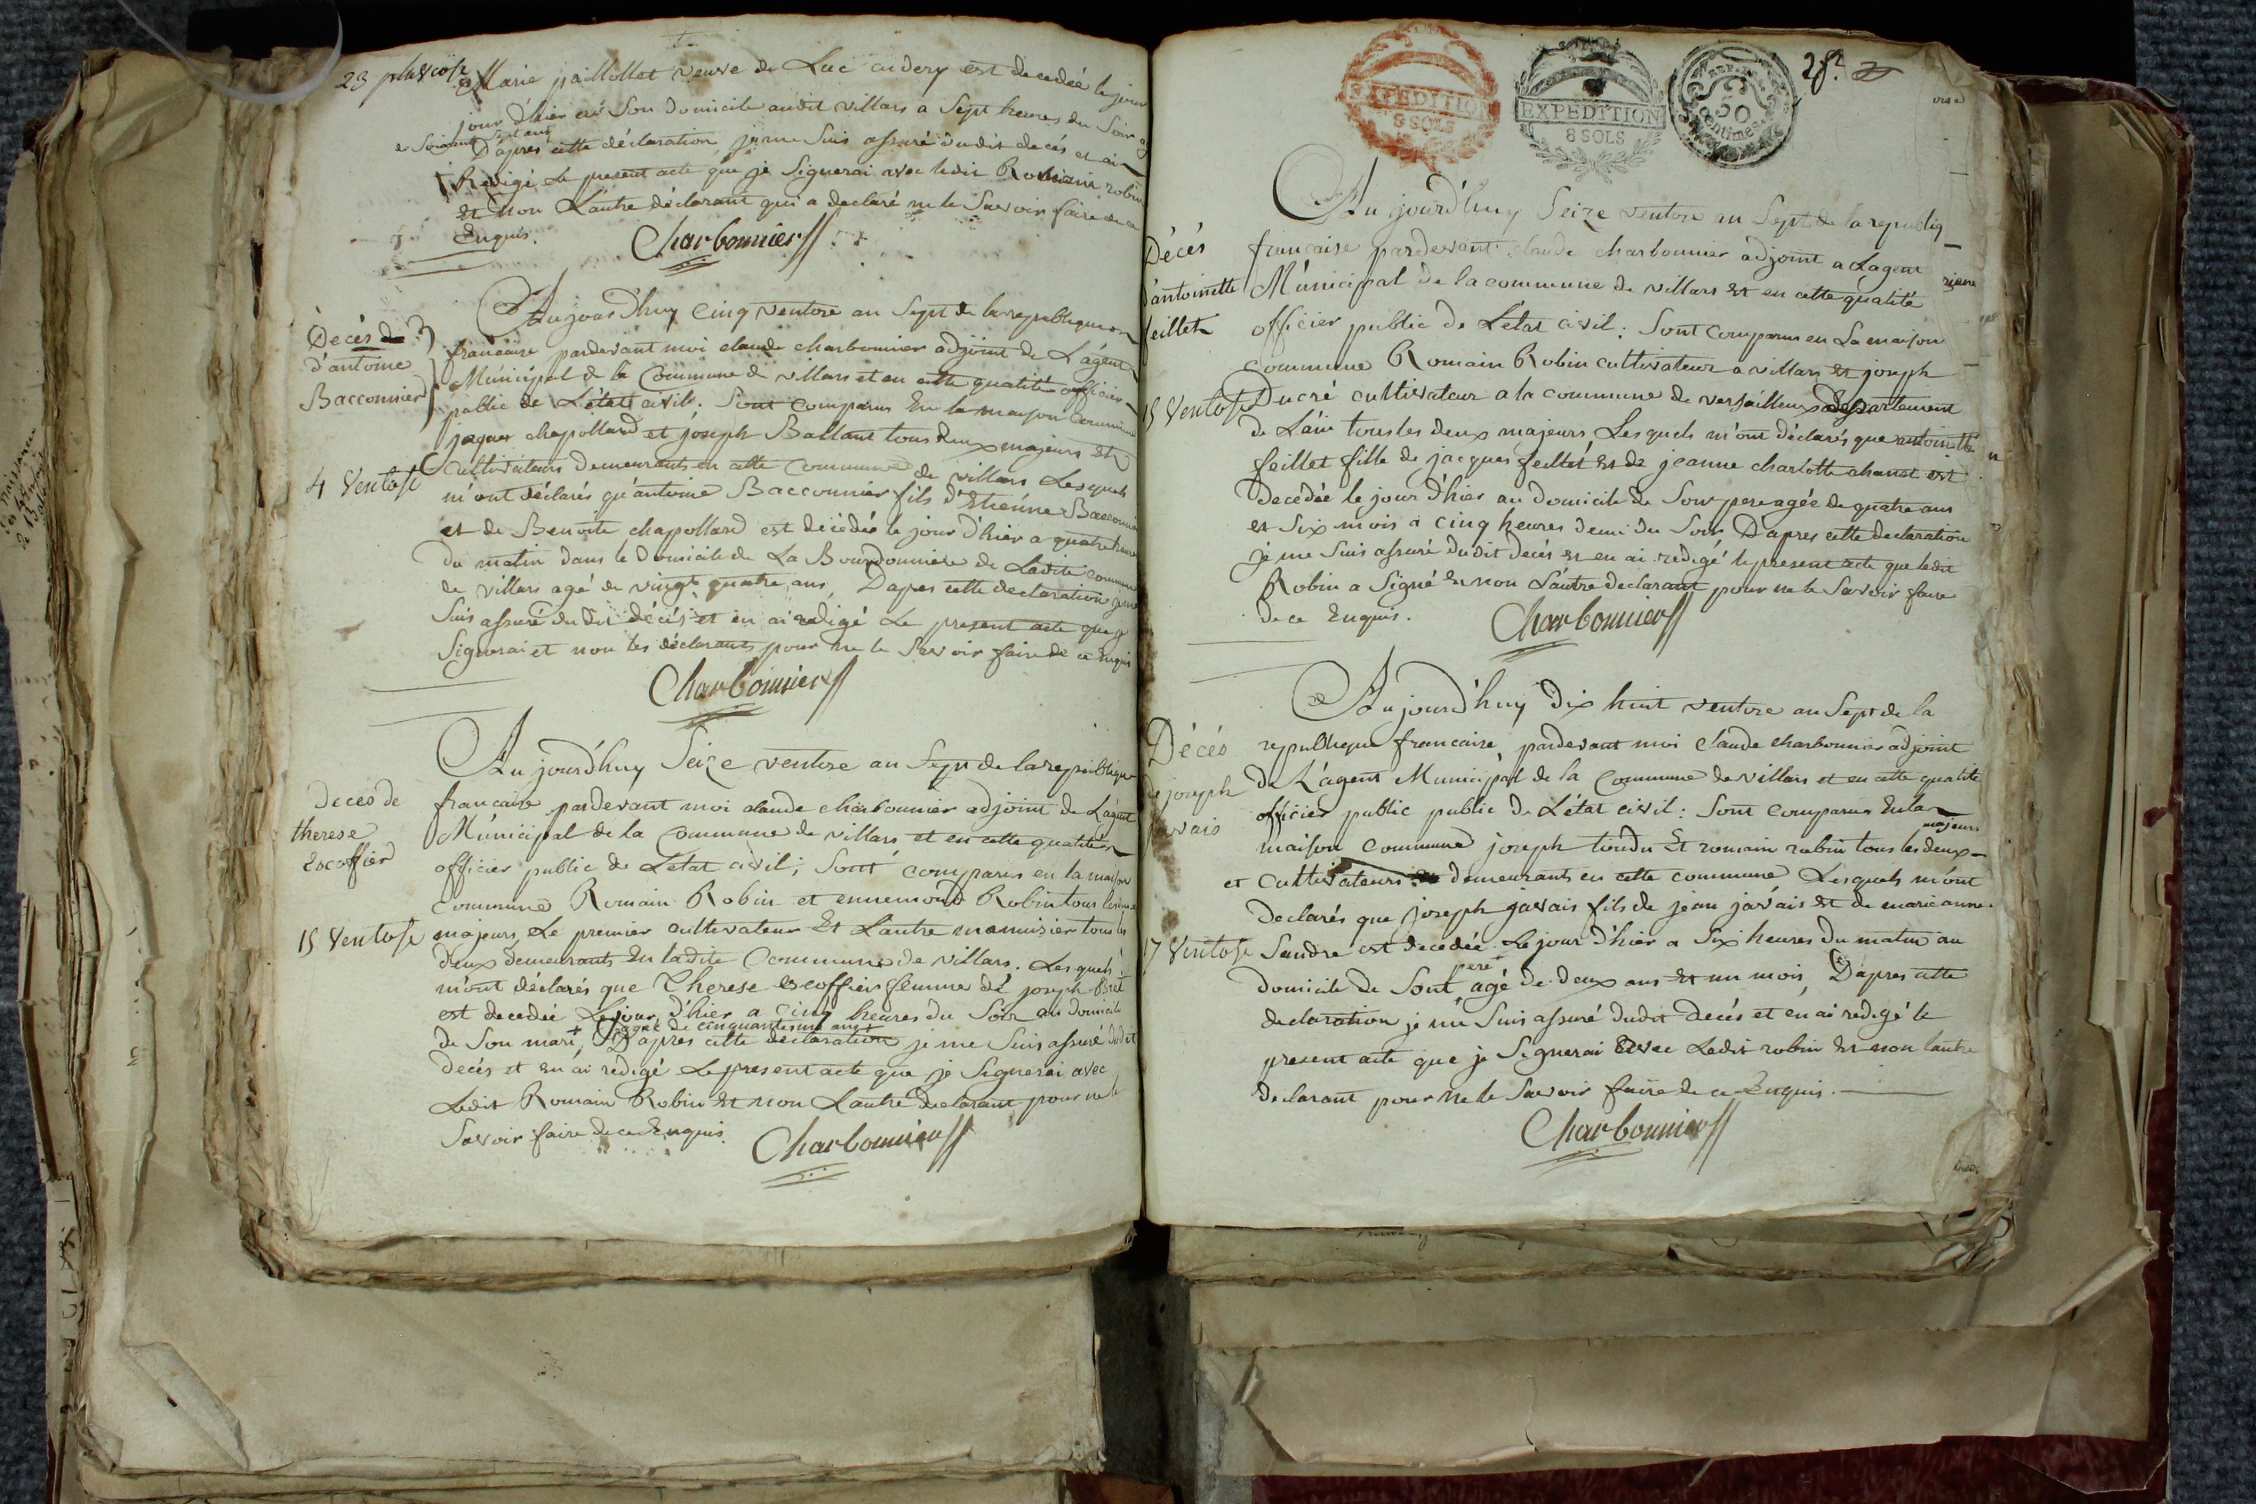 23 pluviose Marie paillollet veuve de Luc est decedée le jour
jour d'hier en Son domicile audit villars a Sept heures du Soir
D'apres cette déclaration je me Suis assuré dudit decés et ai
Redigé Le present acte que je Signerai avec ledit Romain robin
Et Non L'autre déclarant qui a declaré ne le Savoir faire de ce
Enquis. Charbonnier
Decés de
d'antoine
Bacconnier
4 Ventose
Aujourd'huy Cinq ventose an Sept de la republique
francaise pardevant moi claude charbonnier adjoint de L'agent
Municipal de la Commune de villars et en cette qualité officier
public de L'état civil: Sont comparus En la maison Commune
jaques chapolland et joseph Balland tous deux majeurs Et
Cultivateurs Demeurants en cette Commune de villars Lesquels
m'ont déclarés qu'antoine Bacconnier fils d'Etiénne Bacconnier
et de Benoite chapolland est décédé le jour d'hier a quatre heures
du matin dans le Domicile de La Bourdonniere de Ladite commune
de villars agé de vingt quatre ans, D'apres cette declaration je me
Suis assuré du dit décés et en ai redigé Le present acte que je
Signerai et non les déclarants pour ne le Savoir faire de ce Enquis
Charbonnier
Decés de
therese
Escoffier
15 Ventose
Aujourd'huy Seize ventose an Sept de la republique
francaise pardevant moi claude charbonnier adjoint de L'agent
Municipal de la Commune de villars et en cette qualité
officier public de L'état civil; Sont comparus en la maison
commune Romain Robin et ennemond Robin tous
majeurs, Le premier cultivateur Et L'autre menuisier tous les
deux demeurants En ladite Commune de villars. Lesquels
m'ont déclarés que Therese escoffier femme de joseph
est decedée Le jour d'hier a cinq heures du Soir au domicile
agée de cinquante un ans
de Son mari, D'apres cette declaration je me Suis assuré dudit
decés et En ai redigé Le present acte que je Signerai avec
Ledit Romain Robin Et non L'autre declarant pour ne le
Savoir faire de ce Enquis. Charbonnier
EXPEDITION
8 SOLS
EXPEDITION
8 SOLS
REP. FRA.
50
Centimes
28
Décés
d'antoinette
feillet
15 Ventose
Aujourd'huy Seize ventose an Sept de la republiq
francaise pardevant claude charbonnier adjoint a L'agent
Municipal de la commune de villars Et en cette qualité
officier public de L'état civil: Sont comparus en La maison
commune Romain Robin cultivateur a villars Et joseph
Ducré cultivateur a la commune de versailleux departement
de L'ain tous les deux majeurs Lesquels m'ont déclarés que antoinette
feillet fille de jacques feillet Et de jeanne charlotte chanet est
Decedée le jour d'hier au domicile de Son pere agée de quatre ans
et Six mois a cinq heures demi du Soir D'apres cette declaration
je me Suis assuré dudit decés Et en ai redigé le present acte que ledit
Robin a Signé Et non L'autre declarant pour ne le Savoir faire
de ce Enquis.
Charbonnier
Décés
de joseph
javais
17 Ventose
Aujourd'huy Dix huit ventose an Sept de la
republique francaise, pardevant moi claude charbonnier adjoint
de L'agent Municipal de la Commune de villars et en cette qualité
officier public public de L'état civil: Sont comparus En la
majeurs
maison Commune joseph tondu Et romain robin tous les deux
et Cultivateurs demeurants en cette commune Lesquels m'ont
declarés que joseph javais fils de jean javais Et de marie anne
Sandre est decedée Le jour d'hier a Six heures du matin au
domicile de Sont pere agé de deux ans Et un mois, D'apres cette
declaration je me Suis assuré dudit Decés et en ai redigé le
present acte que je Signerai avec Ledit robin Et non l'autre
declarant pour ne le Savoir faire de ce Enquis.
Charbonnier